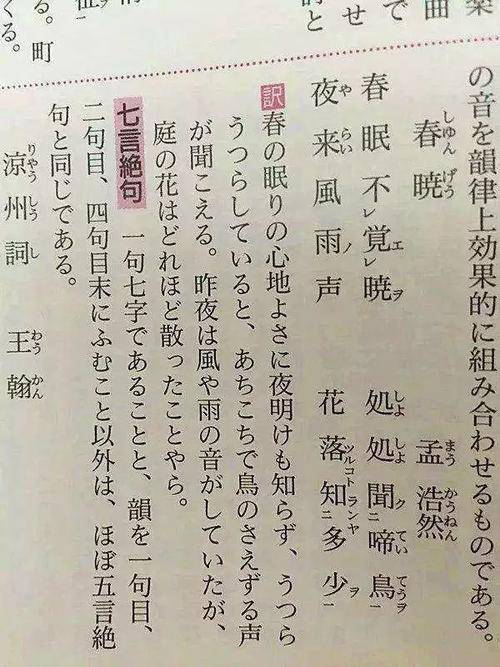 の音を韻律上効果的に組み合わせるものである。
春暁 孟浩然
春眠不覚暁 処処聞啼鳥
夜来風雨声 花落知多少
訳 春の眠りの心地よさに夜明けも知らず、うつら
うつらしていると、あちこちで鳥のさえずる声
が聞こえる。昨夜は風や雨の音がしていたが、
庭の花はどれほど散ったことやら。
七言絶句 一句七字であることと、韻を一句目、
二句目、四句目末にふむこと以外は、ほぼ五言絶
句と同じである。
涼州詞 王翰